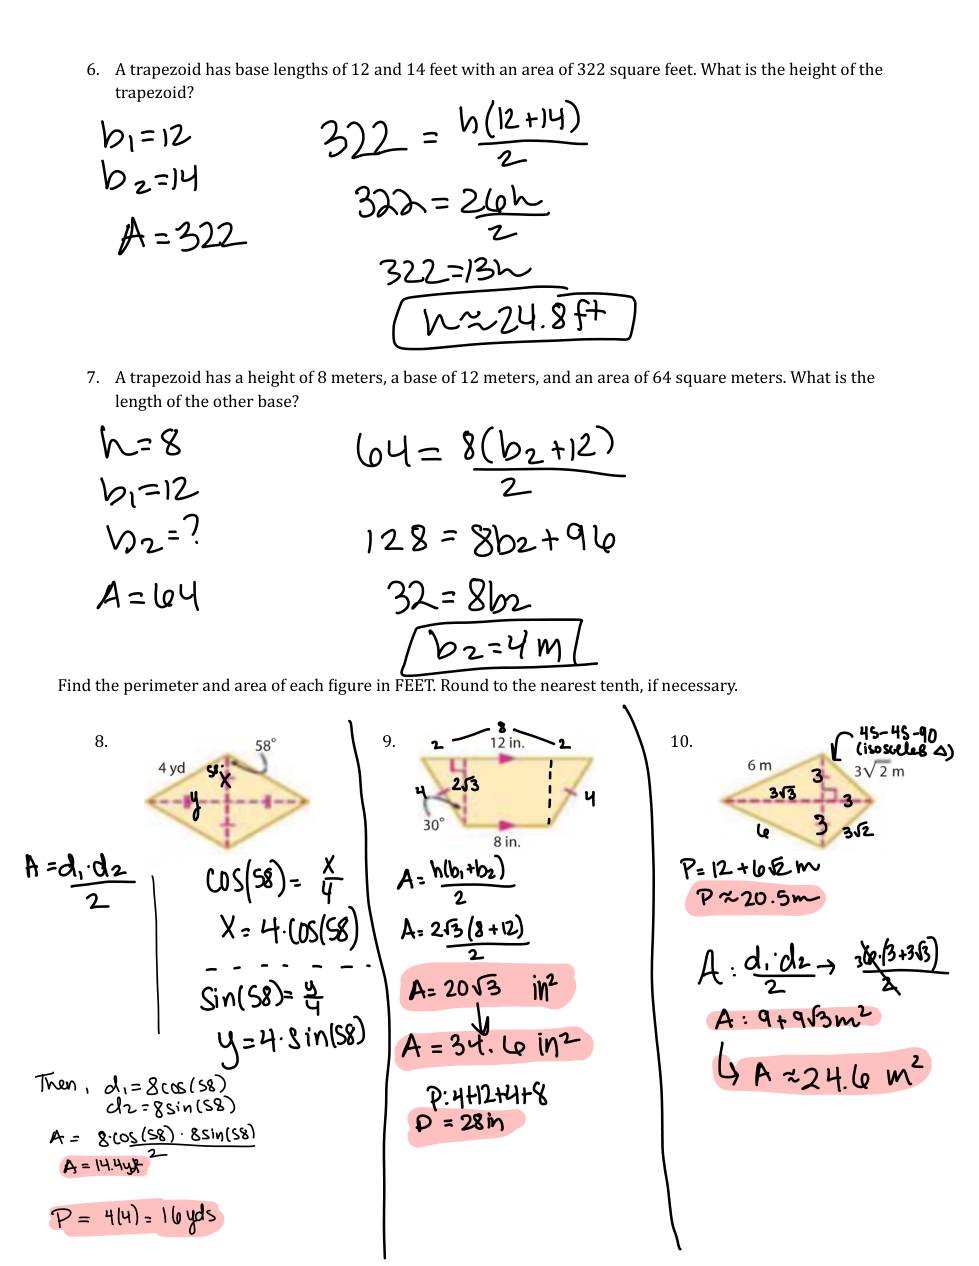 6. A trapezoid has base lengths of 12 and 14 feet with an area of 322 square feet. What is the height of the
trapezoid?
b₁=12
b₂=14
A=322
322 = h(12+14)/2
322 = 26h/2
322=13h
h≈24.8ft
7. A trapezoid has a height of 8 meters, a base of 12 meters, and an area of 64 square meters. What is the
length of the other base?
h=8
b₁=12
b₂=?
A=64
64= 8(b₂+12)/2
128 = 8b₂+96
32=8b₂
b₂=4m
Find the perimeter and area of each figure in FEET. Round to the nearest tenth, if necessary.
8.
58°
4 yd
58°
x
y
A=d₁·d₂/2
cos(58)= x/4
x=4·cos(58)
sin(58)= y/4
y=4·sin(58)
Then, d₁=8cos(58)
d₂=8sin(58)
A= 8·cos(58)·8sin(58)/2
A=14.4yd²
P= 4(4)=16yds
9.
8
2 12 in. 2
2√3
4
4
30°
8 in.
A= h(b₁+b₂)/2
A= 2√3(8+12)/2
A= 20√3 in²
A=34.6in²
P:4+12+4+8
P=28in
10.
45-45-90
(isosceles Δ)
6 m
3
3√2 m
3√3
3
6
3
3√2
P=12+6√2m
P≈20.5m
A: d₁·d₂/2 → 6·(3+3√3)/2
3
A: 9+9√3m²
A≈24.6 m²